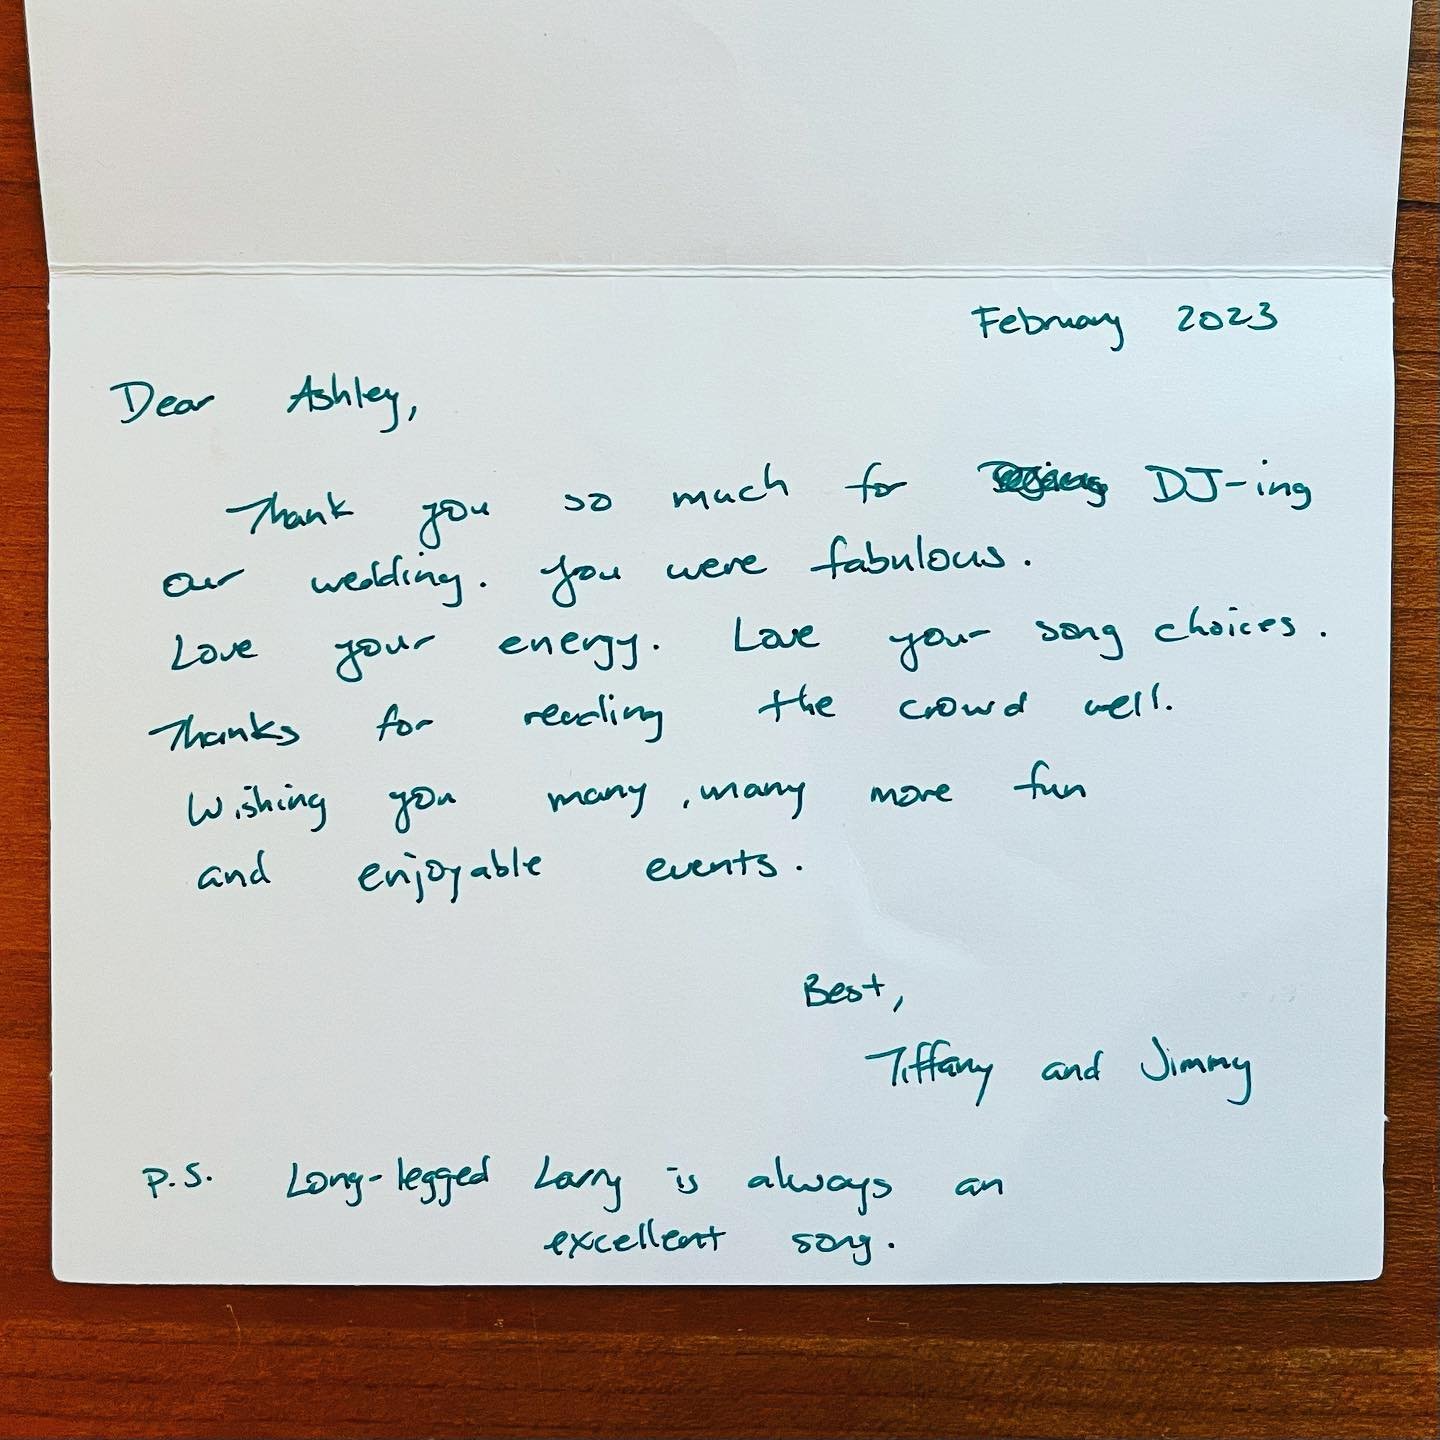 February 2023
Dear Ashley,
Thank you so much for DJ-ing
our wedding. You were fabulous.
Love your energy. Love your song choices.
Thanks for reading the crowd well.
Wishing you many, many more fun
and enjoyable events.
Best,
Tiffany and Jimmy
P.S. Long-legged Larry is always an
excellent song.